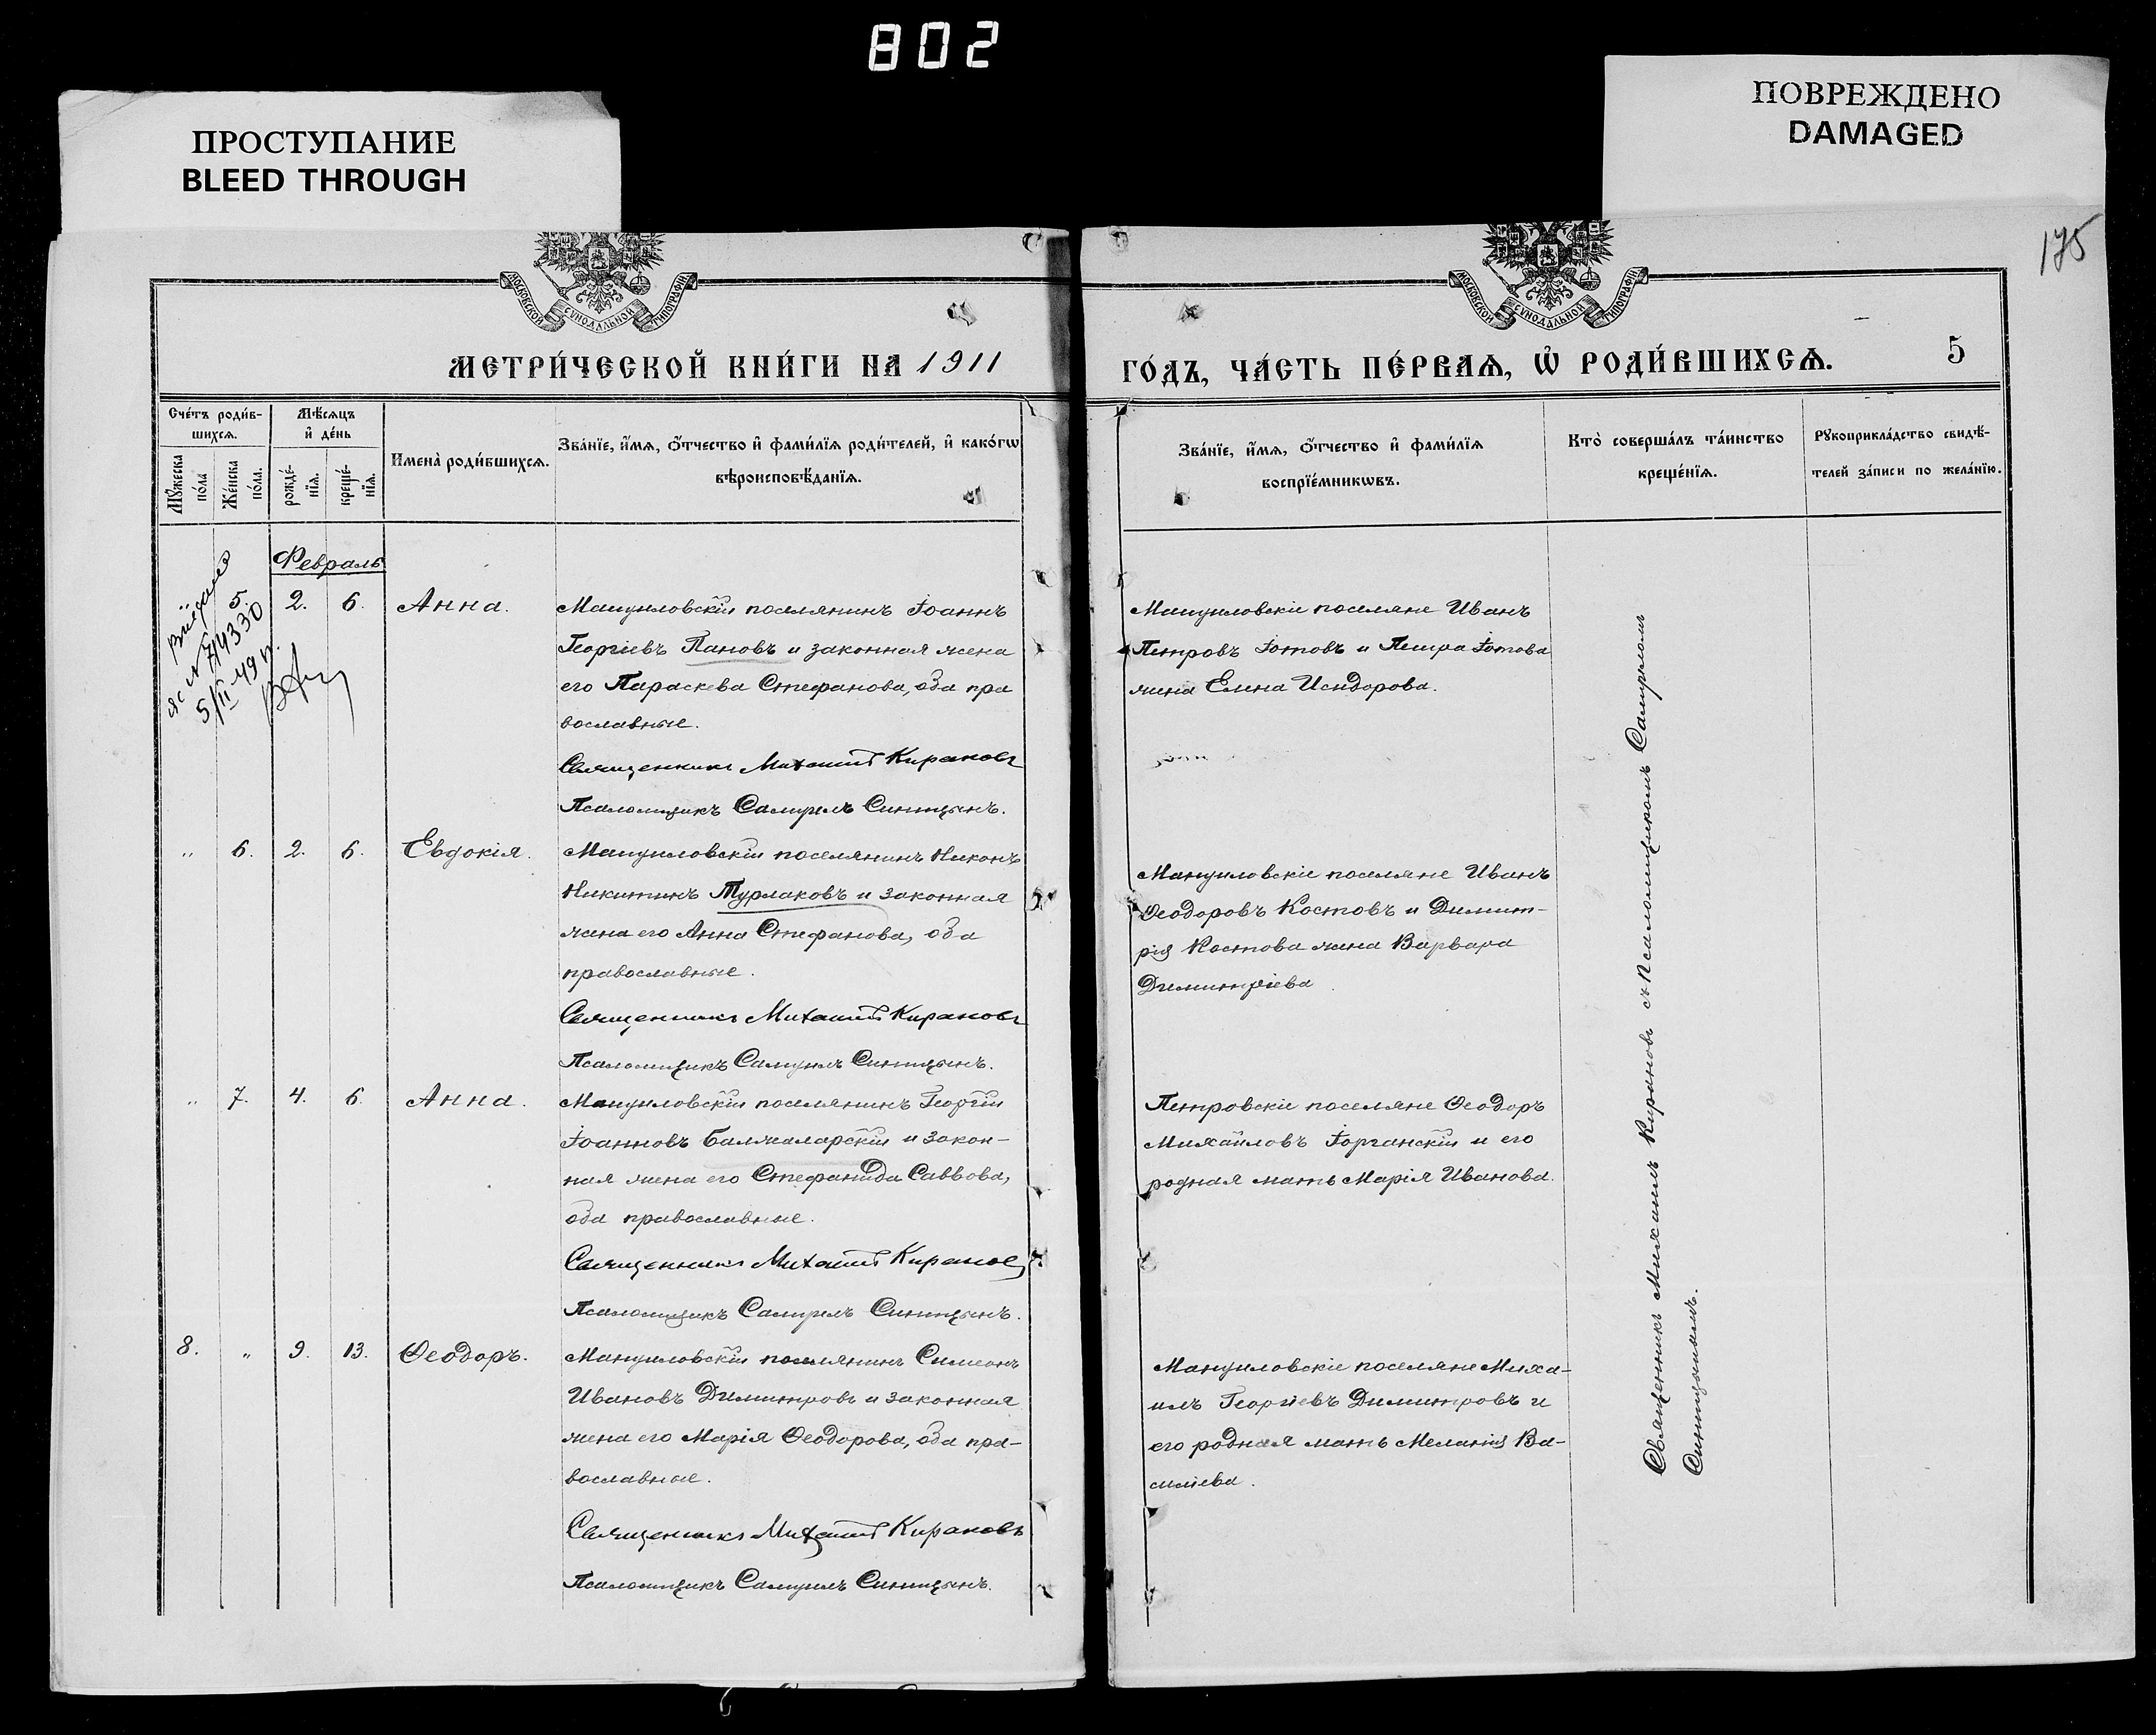 802
ПРОСТУПАНИЕ
BLEED THROUGH
ПОВРЕЖДЕНО
DAMAGED
175
МОСКОВСКОЙ СѴНОДАЛЬНОЙ ТИПОГРАФІИ
МОСКОВСКОЙ СѴНОДАЛЬНОЙ ТИПОГРАФІИ
МЕТРИ́ЧЕСКОЙ КНИ́ГИ НА 1911
ГО́ДЪ, ЧА́СТЬ ПЕ́РВАѦ, Ѿ РОДИ́ВШИХСѦ.
5
Сче́тъ роди́в-
шихсѧ.
Мѣ́сѧцъ
и҆ де́нь
Мꙋ́жеска
по́ла
Же́нска
по́ла.
рожде́-
нїѧ.
креще́-
нїѧ.
Имена̀ роди́вшихсѧ.
Зва́нїе, и҆́мѧ, ѻ҆́тчество и҆ фами́лїѧ роди́телей, и҆ како́гѡ
вѣроисповѣ́данїѧ.
Зва́нїе, и҆́мѧ, ѻ҆́тчество и҆ фами́лїѧ
воспрїе́мникѡвъ.
Кто̀ соверша́лъ та́инство
креще́нїѧ.
Рꙋкоприкла́дство свидѣ́-
телей за́писи по жела́нїю.
Февраль
5. 2. 6. Анна.
5/II 49 г.
Мануиловскій поселянинъ Іоаннъ
Георгіевъ Пановъ и законная жена
его Параскева Стефанова, оба пра
вославные.
Священникъ Михаилъ Кирановъ
Псаломщикъ Самуилъ Синицынъ.
Мануиловскіе поселяне Иванъ
Петровъ Іотовъ и Петра Іотова
жена Елена Исидорова.
" 6. 2. 6. Евдокія.
Мануиловскій поселянинъ Никонъ
Никитинъ Турлаковъ и законная
жена его Анна Стефанова, оба
православные.
Священникъ Михаилъ Кирановъ
Псаломщикъ Самуилъ Синицынъ.
Мануиловскіе поселяне Иванъ
Ѳеодоровъ Костовъ и Димит-
рія Костова жена Варвара
Димитріева.
" 7. 4. 6. Анна.
Мануиловскій поселянинъ Георгій
Іоанновъ Балжаларскій и закон-
ная жена его Стефанида Саввова,
оба православные.
Священникъ Михаилъ Кирановъ
Псаломщикъ Самуилъ Синицынъ.
Петровскіе поселяне Ѳеодоръ
Михайловъ Іорганскій и его
родная мать Марія Иванова.
8. " 9. 13. Ѳеодоръ.
Мануиловскій поселянинъ Симеонъ
Ивановъ Димитровъ и законная
жена его Марія Ѳеодорова, оба пра-
вославные.
Священникъ Михаилъ Кирановъ
Псаломщикъ Самуилъ Синицынъ.
Мануиловскіе поселяне Миха-
илъ Георгіевъ Димитровъ и
его родная мать Меланія Ва-
силіева.
Священникъ Михаилъ Кирановъ съ псаломщикомъ Самуиломъ
Синицынымъ.